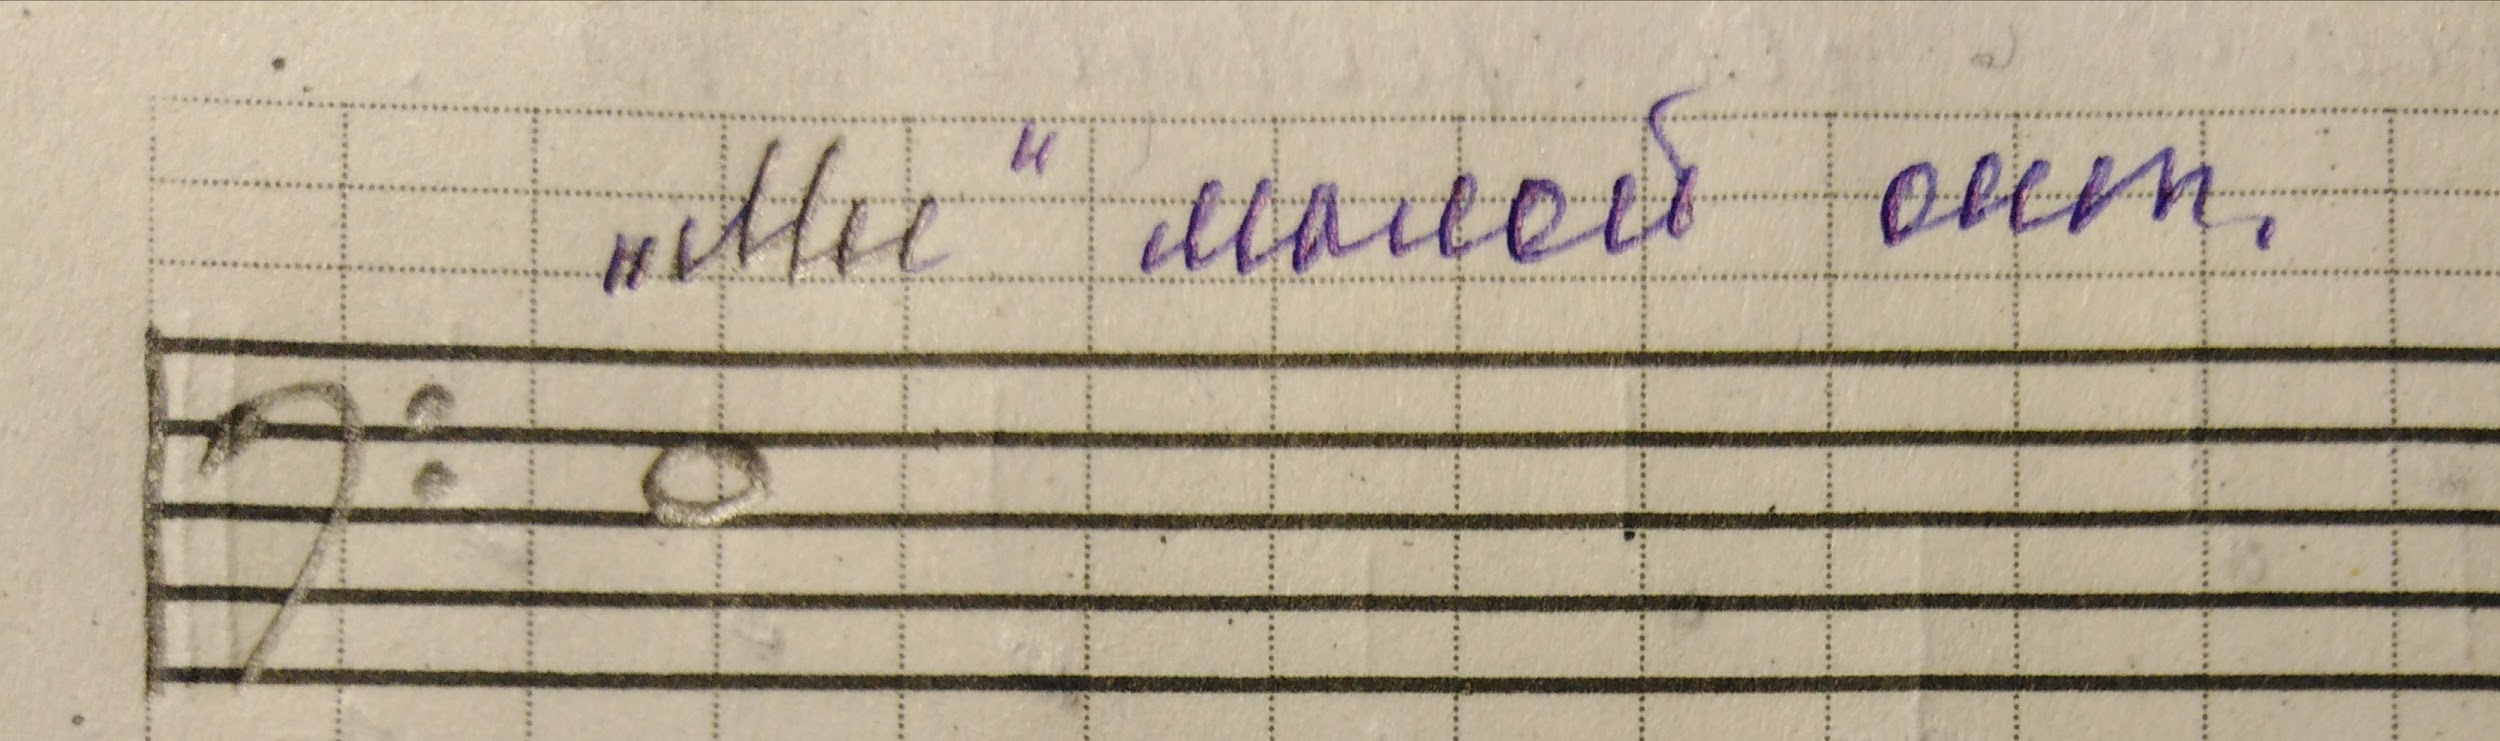 „Ми" малой окт.